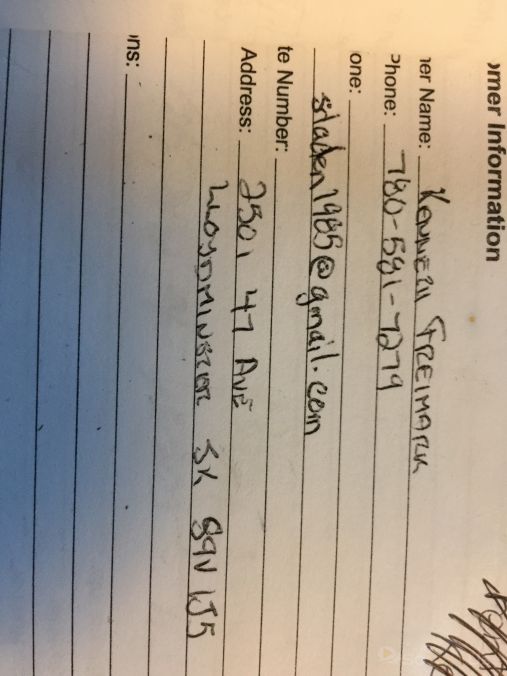 omer Information
ner Name: KENNETH FREIMARK
Phone: 780-581-7279
one:
sladen1985@gmail.com
te Number:
Address: 2501 47 AVE
LLOYDMINSTER SK S9V 1J5
ns: